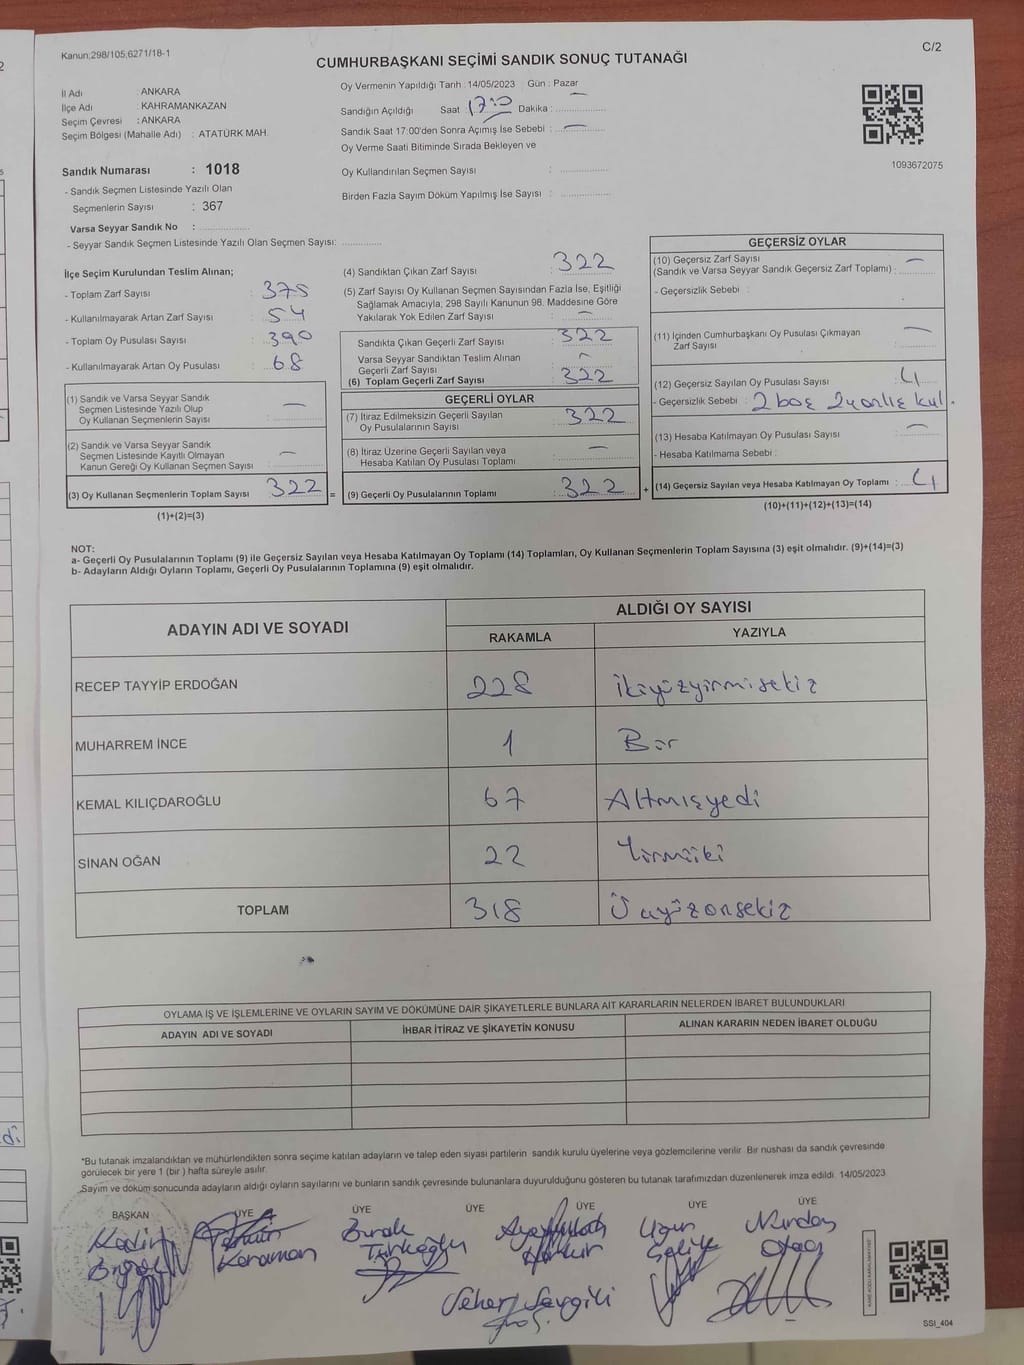 Kanun;298/105;6271/18-1
C/2
CUMHURBAŞKANI SEÇİMİ SANDIK SONUÇ TUTANAĞI
İl Adı : ANKARA
İlçe Adı : KAHRAMANKAZAN
Seçim Çevresi : ANKARA
Seçim Bölgesi (Mahalle Adı) : ATATÜRK MAH.
Sandık Numarası : 1018
- Sandık Seçmen Listesinde Yazılı Olan
Seçmenlerin Sayısı : 367
Varsa Seyyar Sandık No :
- Seyyar Sandık Seçmen Listesinde Yazılı Olan Seçmen Sayısı:
Oy Vermenin Yapıldığı Tarih : 14/05/2023 Gün : Pazar
Sandığın Açıldığı Saat : 17:0 Dakika :
Sandık Saat 17:00'den Sonra Açılmış İse Sebebi : —
Oy Verme Saati Bitiminde Sırada Bekleyen ve
Oy Kullandırılan Seçmen Sayısı :
Birden Fazla Sayım Döküm Yapılmış İse Sayısı :
1093672075
İlçe Seçim Kurulundan Teslim Alınan;
- Toplam Zarf Sayısı : 375
- Kullanılmayarak Artan Zarf Sayısı : 54
- Toplam Oy Pusulası Sayısı : 390
- Kullanılmayarak Artan Oy Pusulası : 68
(1) Sandık ve Varsa Seyyar Sandık
Seçmen Listesinde Yazılı Olup
Oy Kullanan Seçmenlerin Sayısı : —
(2) Sandık ve Varsa Seyyar Sandık
Seçmen Listesinde Kayıtlı Olmayan
Kanun Gereği Oy Kullanan Seçmen Sayısı : —
(3) Oy Kullanan Seçmenlerin Toplam Sayısı : 322 =
(1)+(2)=(3)
(4) Sandıktan Çıkan Zarf Sayısı : 322
(5) Zarf Sayısı Oy Kullanan Seçmen Sayısından Fazla İse, Eşitliği
Sağlamak Amacıyla; 298 Sayılı Kanunun 98. Maddesine Göre
Yakılarak Yok Edilen Zarf Sayısı : —
Sandıkta Çıkan Geçerli Zarf Sayısı : 322
Varsa Seyyar Sandıktan Teslim Alınan
Geçerli Zarf Sayısı : —
(6) Toplam Geçerli Zarf Sayısı : 322
GEÇERLİ OYLAR
(7) İtiraz Edilmeksizin Geçerli Sayılan
Oy Pusulalarının Sayısı : 322
(8) İtiraz Üzerine Geçerli Sayılan veya
Hesaba Katılan Oy Pusulası Toplamı : —
(9) Geçerli Oy Pusulalarının Toplamı : 322 +
GEÇERSİZ OYLAR
(10) Geçersiz Zarf Sayısı
(Sandık ve Varsa Seyyar Sandık Geçersiz Zarf Toplamı) : —
- Geçersizlik Sebebi :
(11) İçinden Cumhurbaşkanı Oy Pusulası Çıkmayan
Zarf Sayısı : —
(12) Geçersiz Sayılan Oy Pusulası Sayısı : 4
- Geçersizlik Sebebi : 2 boş 2 yanlış kul.
(13) Hesaba Katılmayan Oy Pusulası Sayısı : —
- Hesaba Katılmama Sebebi :
(14) Geçersiz Sayılan veya Hesaba Katılmayan Oy Toplamı : 4
(10)+(11)+(12)+(13)=(14)
NOT:
a- Geçerli Oy Pusulalarının Toplamı (9) ile Geçersiz Sayılan veya Hesaba Katılmayan Oy Toplamı (14) Toplamları, Oy Kullanan Seçmenlerin Toplam Sayısına (3) eşit olmalıdır. (9)+(14)=(3)
b- Adayların Aldığı Oyların Toplamı, Geçerli Oy Pusulalarının Toplamına (9) eşit olmalıdır.
ADAYIN ADI VE SOYADI ALDIĞI OY SAYISI
RAKAMLA YAZIYLA
RECEP TAYYİP ERDOĞAN 228 ikiyüzyirmisekiz
MUHARREM İNCE 1 Bir
KEMAL KILIÇDAROĞLU 67 Altmışyedi
SİNAN OĞAN 22 Yirmiiki
TOPLAM 318 Üçyüzonsekiz
OYLAMA İŞ VE İŞLEMLERİNE VE OYLARIN SAYIM VE DÖKÜMÜNE DAİR ŞİKAYETLERLE BUNLARA AİT KARARLARIN NELERDEN İBARET BULUNDUKLARI
ADAYIN ADI VE SOYADI İHBAR İTİRAZ VE ŞİKAYETİN KONUSU ALINAN KARARIN NEDEN İBARET OLDUĞU
*Bu tutanak imzalandıktan ve mühürlendikten sonra seçime katılan adayların ve talep eden siyasi partilerin sandık kurulu üyelerine veya gözlemcilerine verilir. Bir nüshası da sandık çevresinde
görülecek bir yere 1 (bir ) hafta süreyle asılır.
Sayım ve döküm sonucunda adayların aldığı oyların sayılarını ve bunların sandık çevresinde bulunanlara duyurulduğunu gösteren bu tutanak tarafımızdan düzenlenerek imza edildi. 14/05/2023
BAŞKAN ÜYE ÜYE ÜYE ÜYE ÜYE
Kadir
Karaman
Burak
Türkoğlu
Uğur
Nurdan
Seher Sevgili
SSI_404